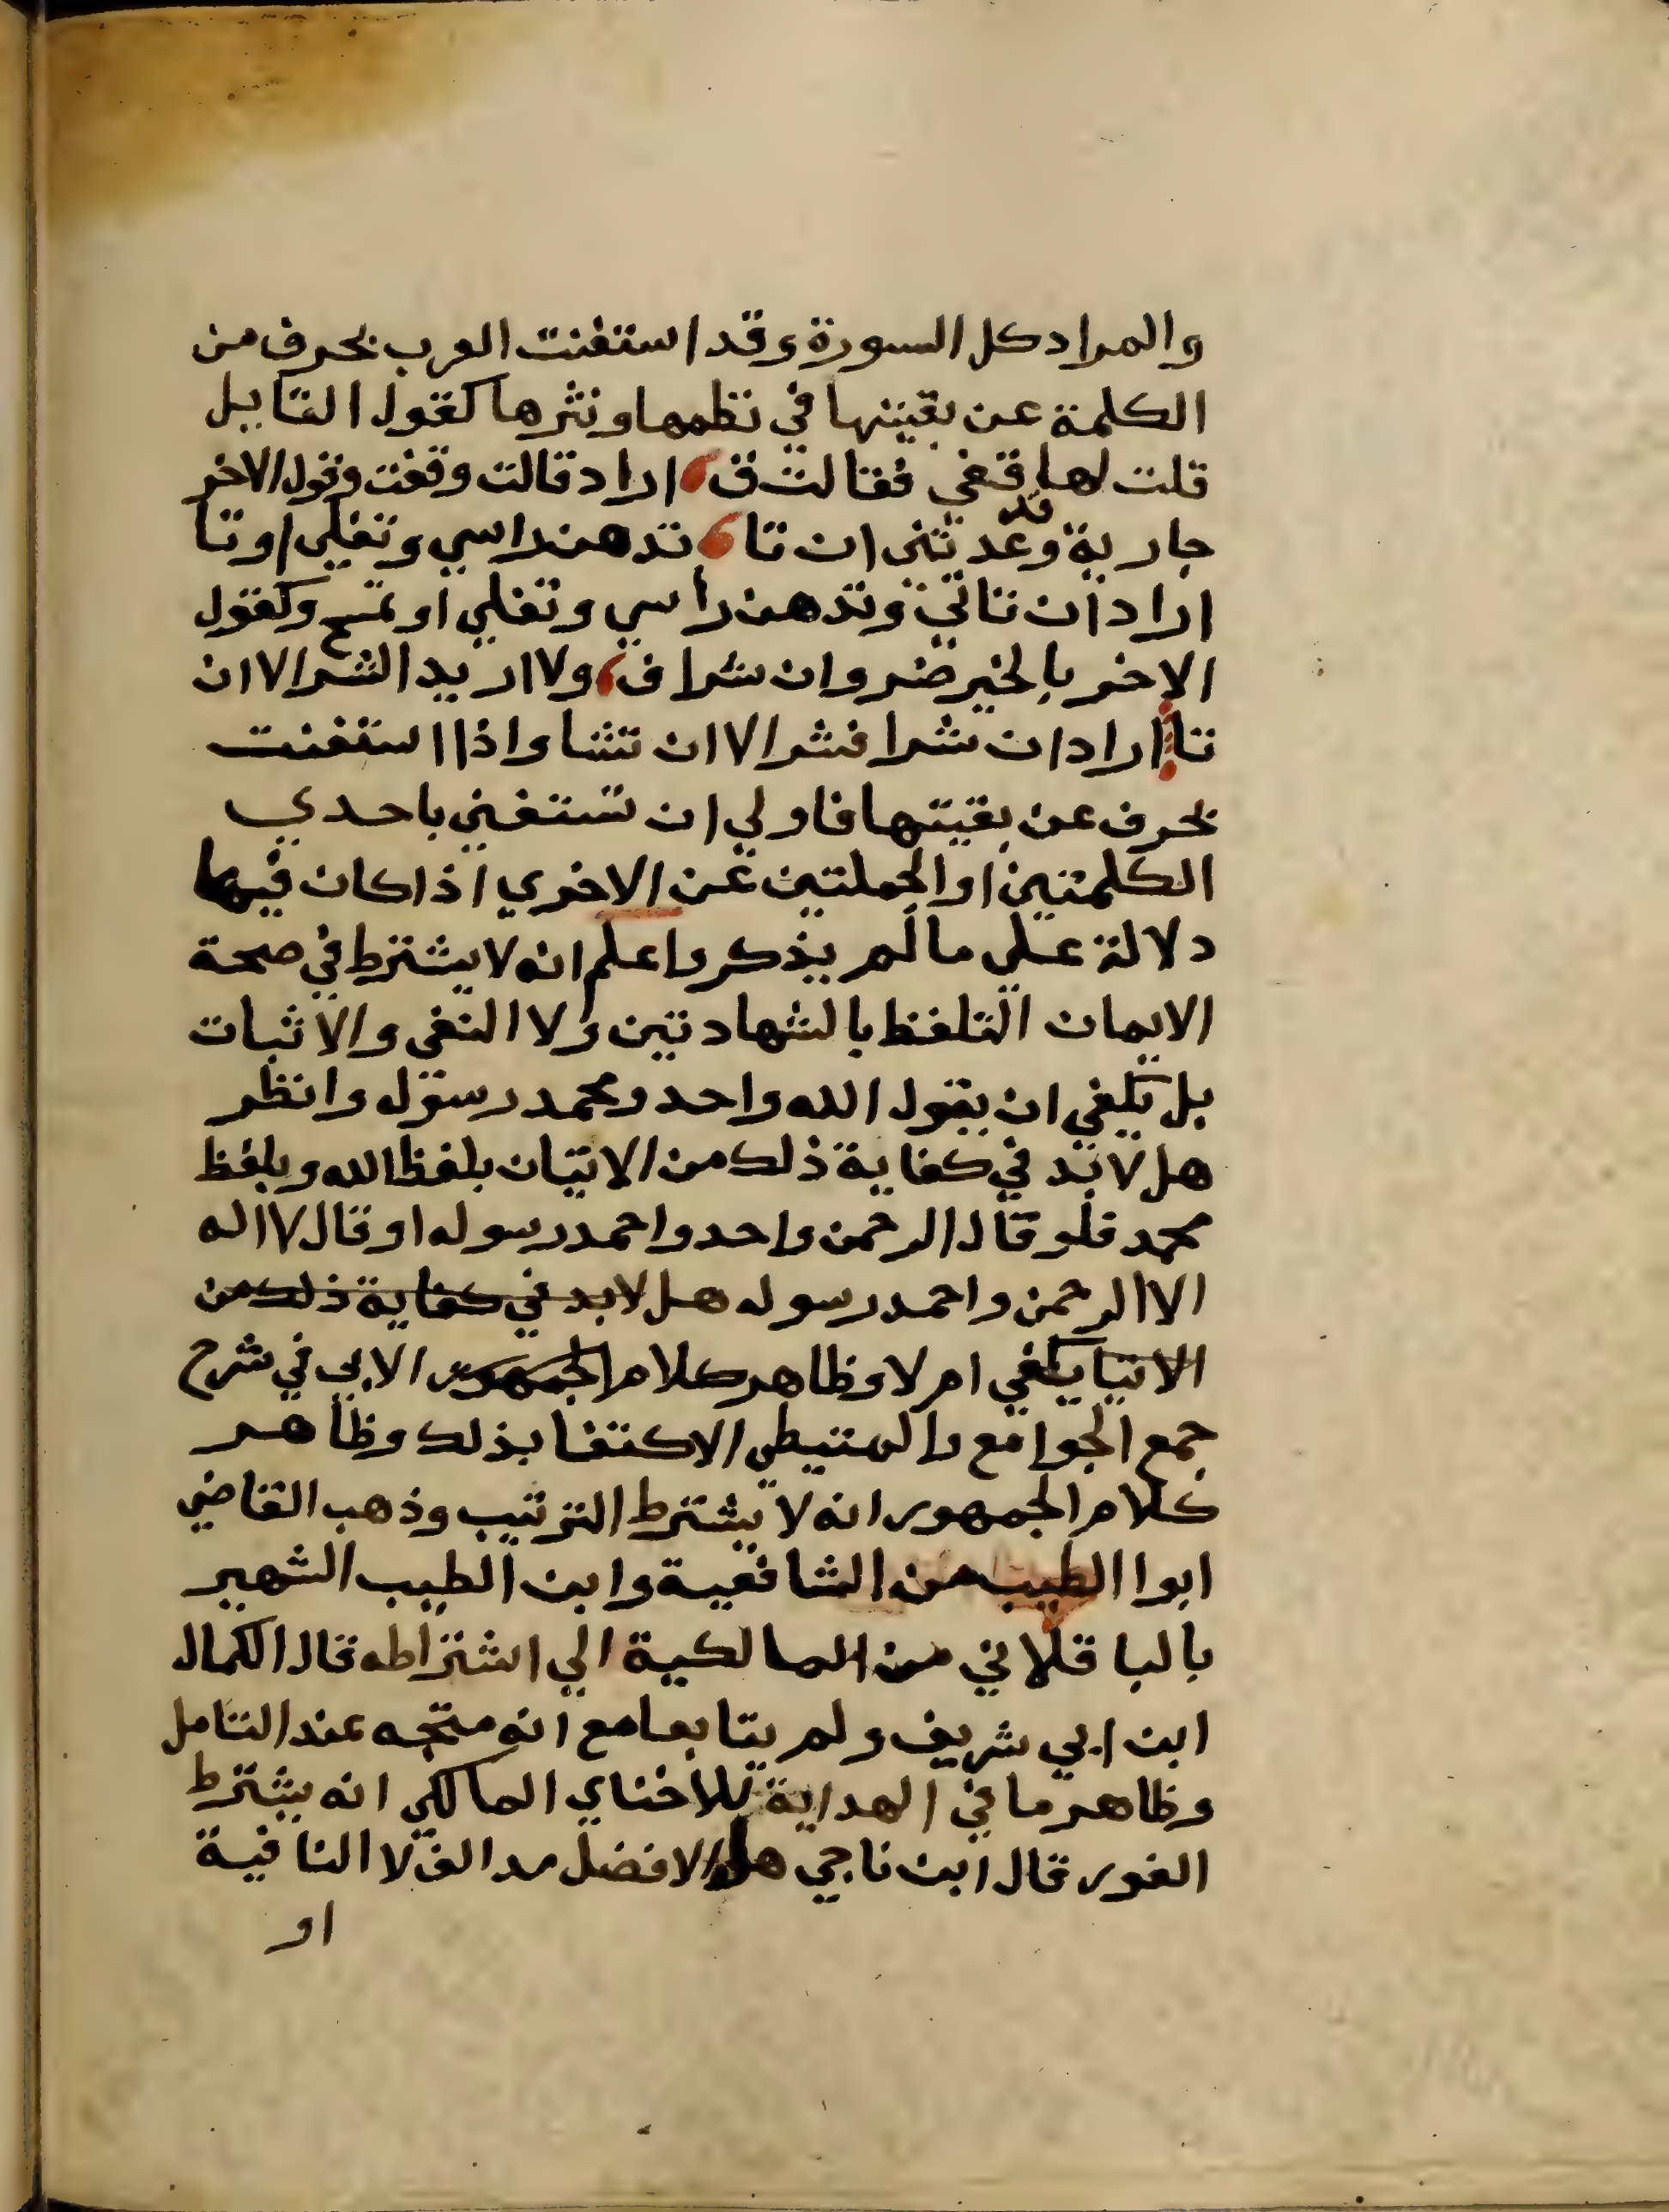 والمراد كل السورة وقد استغنت العرب بحرف من
الكلمة عن بقيتها في نظمها ونثرها كقول القايل
قلت لها قفي فقالت ق اراد قالت وقفت وقول الاخر
جارية قد وعدتني ان تا تدهن راسي وتفلي او تا
اراد ان تاتي وتدهن راسي وتفلي او تمسح وكقول
الاخر بالخير خير وان شرا ف ولا اريد الشر الا ان
تا اراد ان شرا فشر الا ان تشا واذا استغنت
بحرف عن بقيتها فاولي ان تستغني باحدي
الكلمتين او الجملتين عن الاخري اذا كان فيها
دلالة علي ما لم يذكر واعلم انه لا يشترط في صحة
الايمان التلفظ بالشهادتين ولا النفي والاثبات
بل يكفي ان يقول الله واحد ومحمد رسول وانظر
هل لا بد في كفاية ذلك من الاتيان بلفظ الله وبلفظ
محمد فلو قال الرحمن واحد واحمد رسوله او قال لا اله
الا الرحمن واحمد رسوله هل لا بد في كفاية ذلك من
الاتيا يكفي ام لا وظاهر كلام الجمهور الابي في شرح
جمع الجوامع والمتيطي الاكتفا بذلك وظاهر
كلام الجمهور انه لا يشترط الترتيب وذهب القاضي
ابوا الطيب من الشافعية وابن الطيب الشهير
بالباقلاني من المالكية الي اشتراطه قال الكمال
ابن ابي شريف ولم يتابعا مع انه متجه عند التامل
وظاهر ما في الهداية للاخناي المالكي انه يشترط
الفور قال ابن ناجي هل الافضل مد الف لا النافية
او